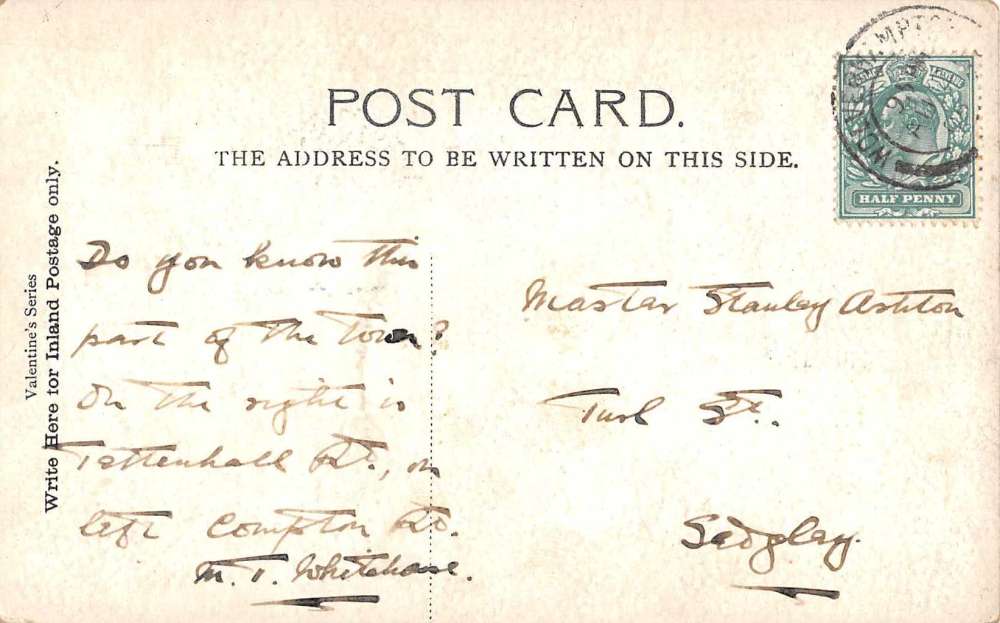 POST CARD.
THE ADDRESS TO BE WRITTEN ON THIS SIDE.
Valentine's Series
Write Here for Inland Postage only.
HALF PENNY
Do you know this
part of the Town?
On the right is
Tettenhall Rd., on
left Compton Rd.
M. T. Whitehouse.
Master Stanley Ashton
Turl St.
Sedgley.